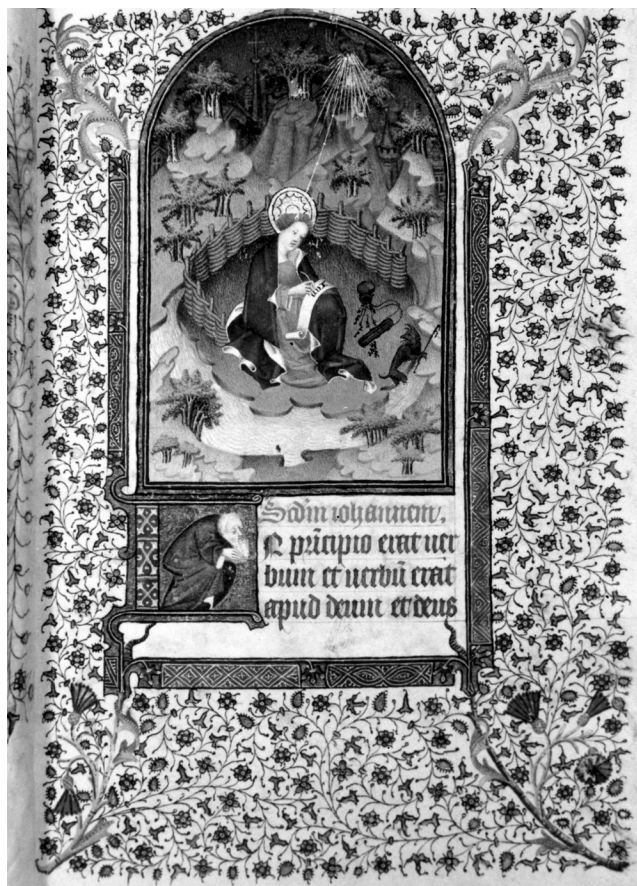 Scd̄m iohannem.
IN prīcipio erat uer
bum et uerbū erat
apud deum et deus